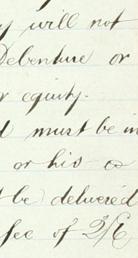 y will not
Debenture or
r equity.
d must be in
or his or
t be delivered
fee of 2/6